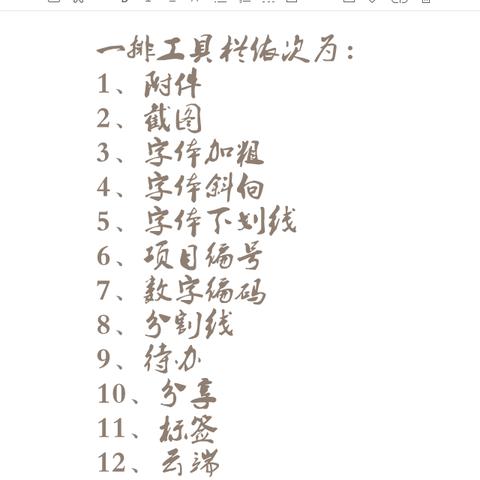 一排工具栏依次为：
1、附件
2、截图
3、字体加粗
4、字体斜向
5、字体下划线
6、项目编号
7、数字编码
8、分割线
9、待办
10、分享
11、标签
12、云端